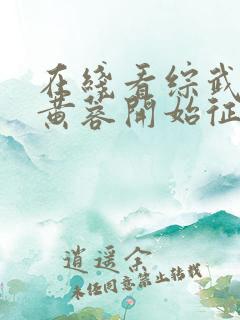 在线看综武
黄蓉開始征
逍遥余
未经同意禁止转载